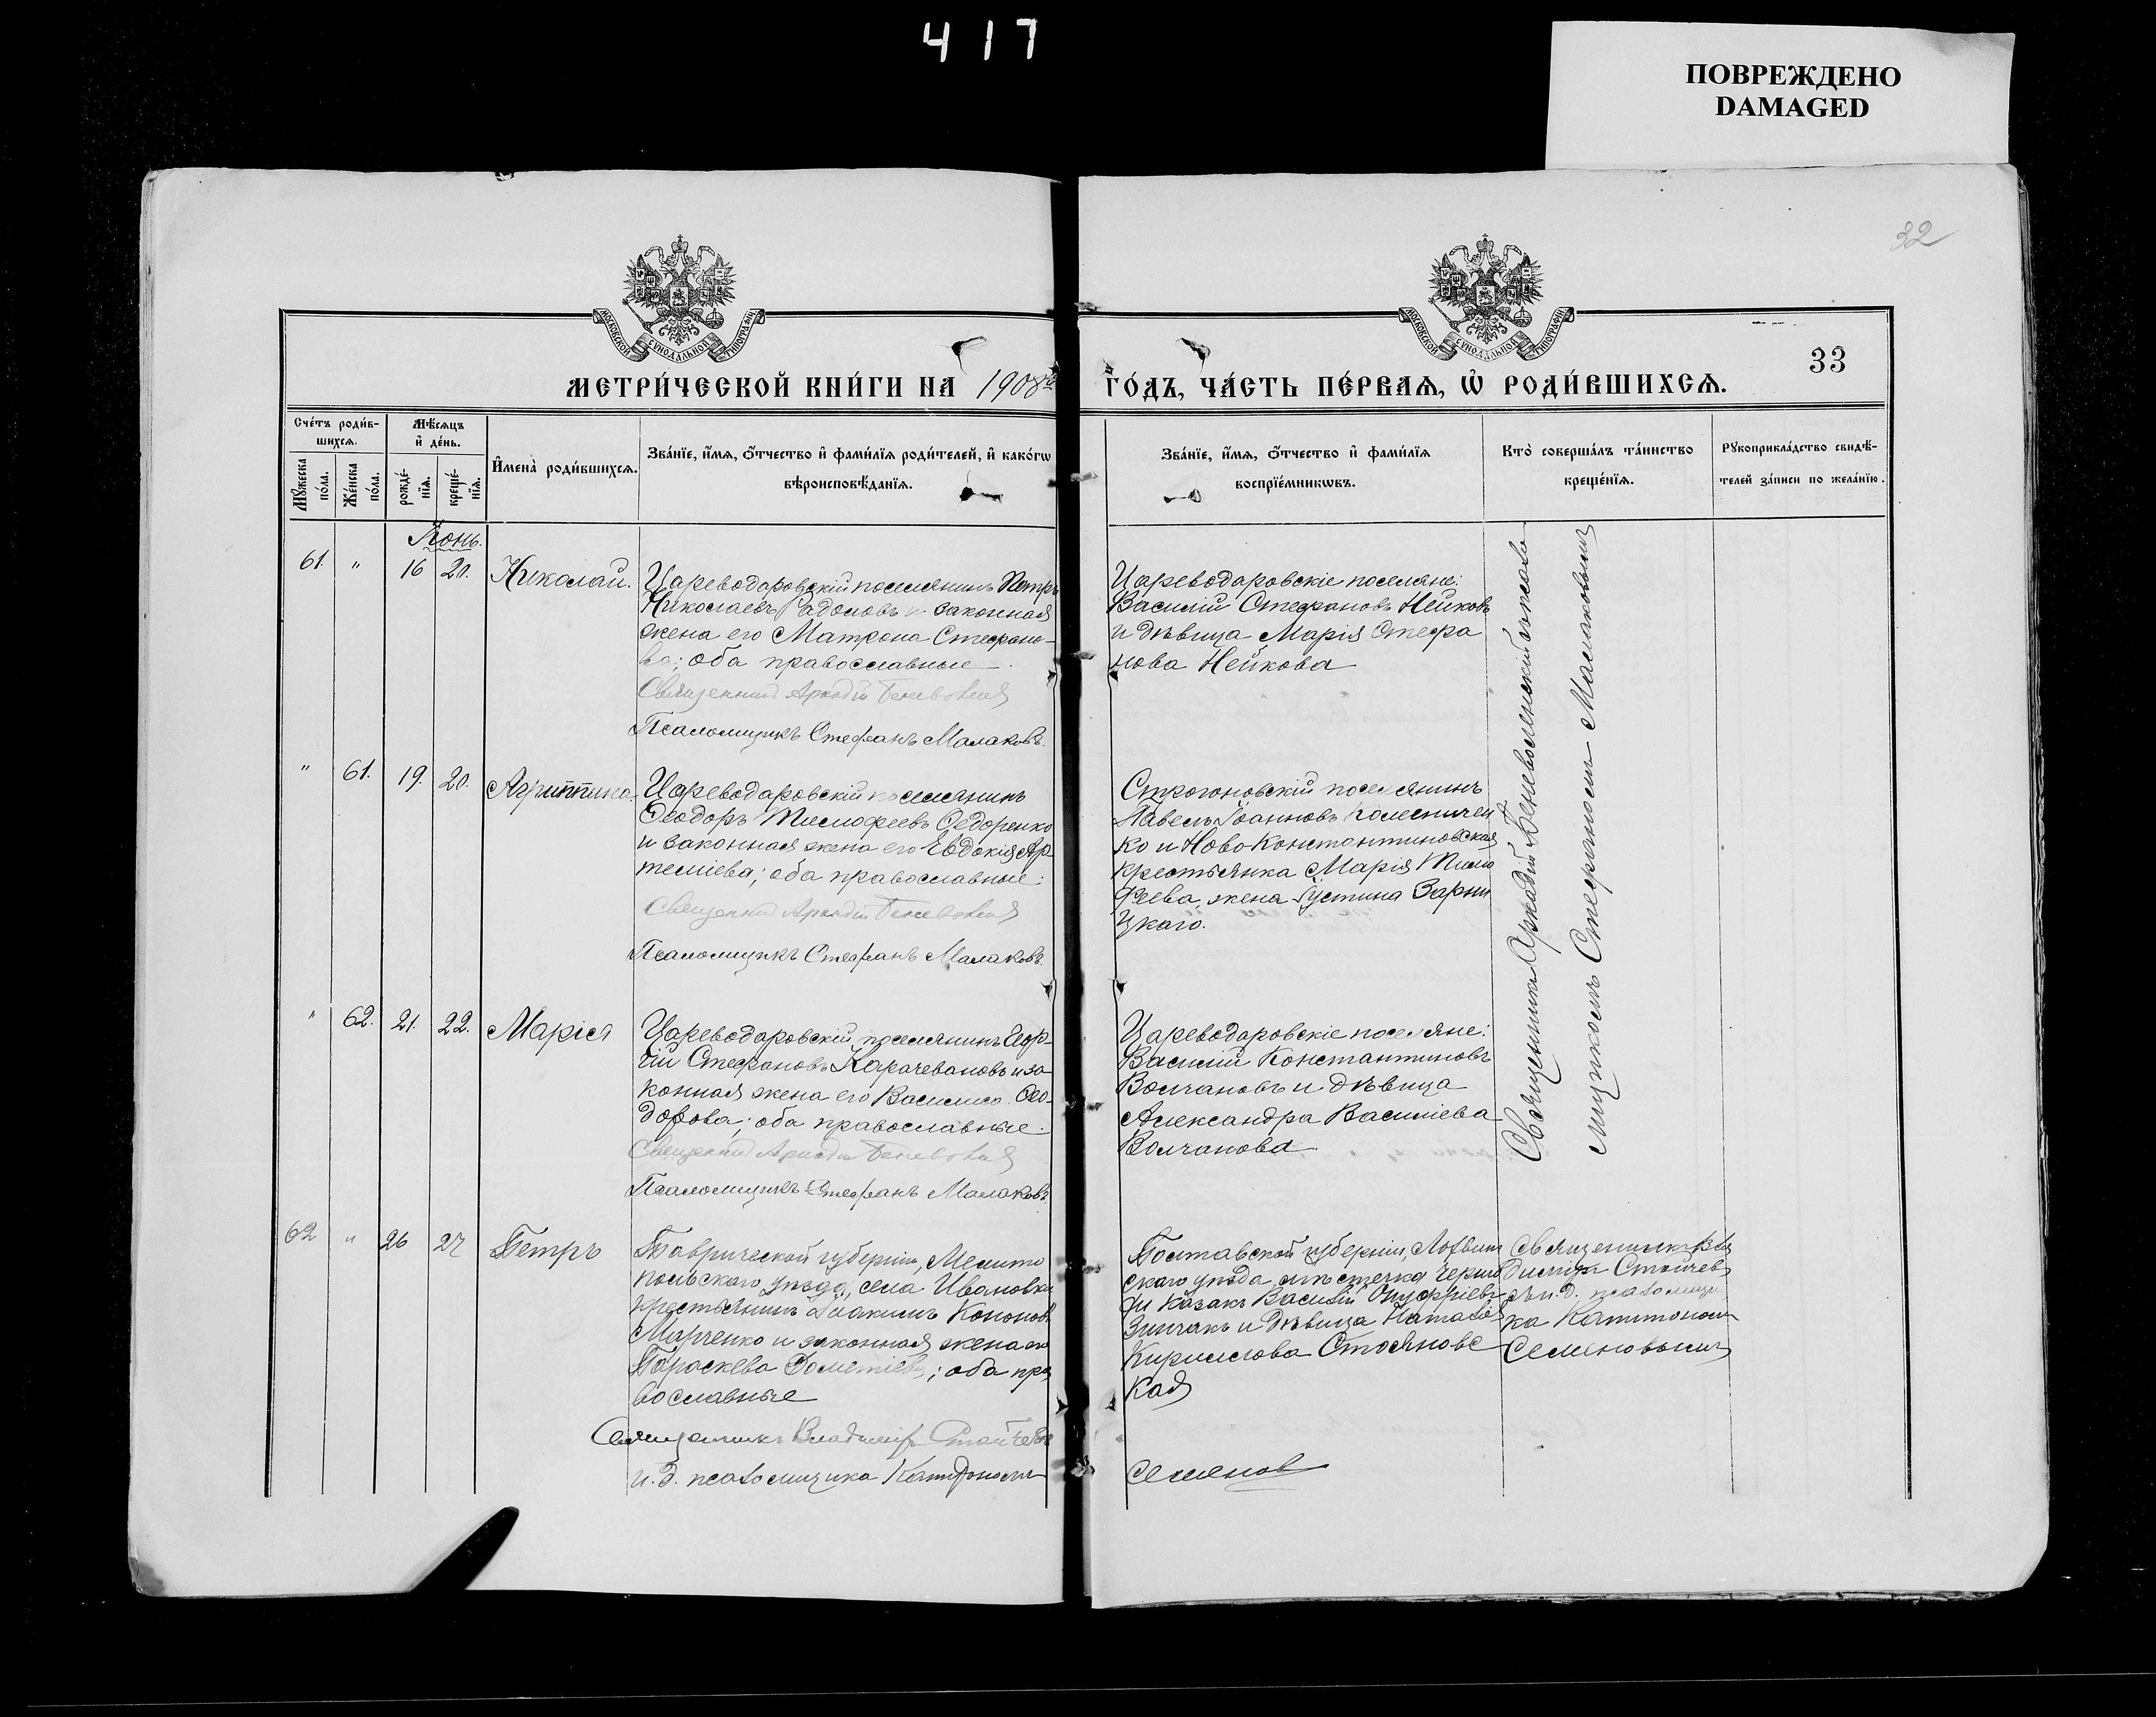 417
ПОВРЕЖДЕНО
DAMAGED
32
33
МЕТРИ́ЧЕСКОЙ КНИ́ГИ НА 1908й
ГО́ДЪ, ЧА́СТЬ ПЕ́РВАЯ, Ѡ҆ РОДИ́ВШИХСѦ.
Сче́тъ роди́в-
шихсѧ.
Мꙋ́жеска по́ла.
Же́нска по́ла.
Мѣ́сѧцъ
и҆ де́нь.
рожде́-
нїѧ.
креще́-
нїѧ.
И҆мена̀ роди́вшихсѧ.
Зва́нїе, и҆́мѧ, ѻ҆́тчество и҆ фами́лїѧ роди́телей, и҆ како́гѡ
вѣроисповѣ́данїѧ.
Зва́нїе, и҆́мѧ, ѻ҆́тчество и҆ фами́лїѧ
воспрїе́мникѡвъ.
Кто̀ соверша́лъ та́инство
креще́нїѧ.
Рꙋкоприкла́дство свидѣ́-
телей за́писи по жела́нїю.
Іюнь.
61. " 16 20. Николай.
Цареводаровскій поселянинъ Петръ
Николаевъ Радоловъ и законная
жена его Матрона Стефано-
ва; оба православные
Священникъ Аркадій Беневоленскій
Псаломщикъ Стефанъ Малаковъ.
Цареводаровскіе поселяне:
Василій Стефановъ Нейковъ
и дѣвица Марія Стефа
нова Нейкова
" 61. 19. 20. Агриппина.
Цареводаровскій поселянинъ
Ѳеодоръ Тимофеевъ Ѳедоренко
и законная жена его Евдокія Ар
теміева; оба православные.
Священникъ Аркадій Беневоленскій
Псаломщикъ Стефанъ Малаковъ.
Строгоновскій поселянинъ
Павелъ Іоанновъ Колесничен
ко и Ново Константиновская
крестьянка Марія Тимо
феева, жена Іустина Зарни
цкаго.
" 62. 21. 22. Марія
Цареводаровскій поселянинъ Геор-
гій Стефановъ Карачевановъ и за
конная жена его Василиса Ѳео-
дорова; оба православные.
Священникъ Аркадій Беневоленскій
Псаломщикъ Стефанъ Малаковъ.
Цареводаровскіе поселяне:
Василій Константиновъ
Волчановъ и дѣвица
Александра Василіева
Волчанова
Священникъ Аркадій Беневоленскій съ псало
мщикомъ Стефаномъ Малаковымъ
62 " 26 27 Петръ
Таврической губерніи, Мелито
польскаго уѣзда, села Ивановки
крестьянинъ Іоакимъ Кононовъ
Марченко и законная жена его
Параскева Дометіева; оба пра
вославные
Священникъ Владиміръ Стойчевъ
и. д. псаломщика Капитонъ
Полтавской губерніи, Лохвиц
скаго уѣзда мѣстечка Черну
хи казакъ Василій Онуфріевъ
Зинчакъ и дѣвица Наталія
Кириллова Стояновс
кая
Семенов
Священникъ Вла
диміръ Стойчевъ
съ и. д. псаломщи
ка Капитоном
Семеновымъ